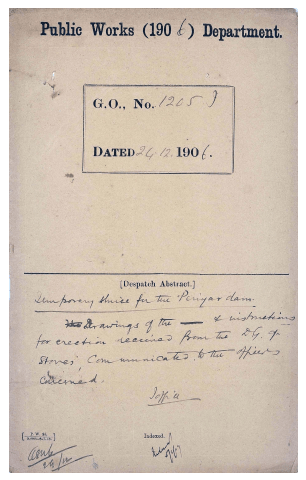 Public Works (1906) Department.
G.O., No. 1205 J
DATED 24.12.1906.
[Despatch Abstract.]
Temporary sluice for the Periyar dam.
Drawings of the — & instructions
for erection received from the D.G. of
Stores, Communicated to the officers
concerned.
Indexed.
24/12